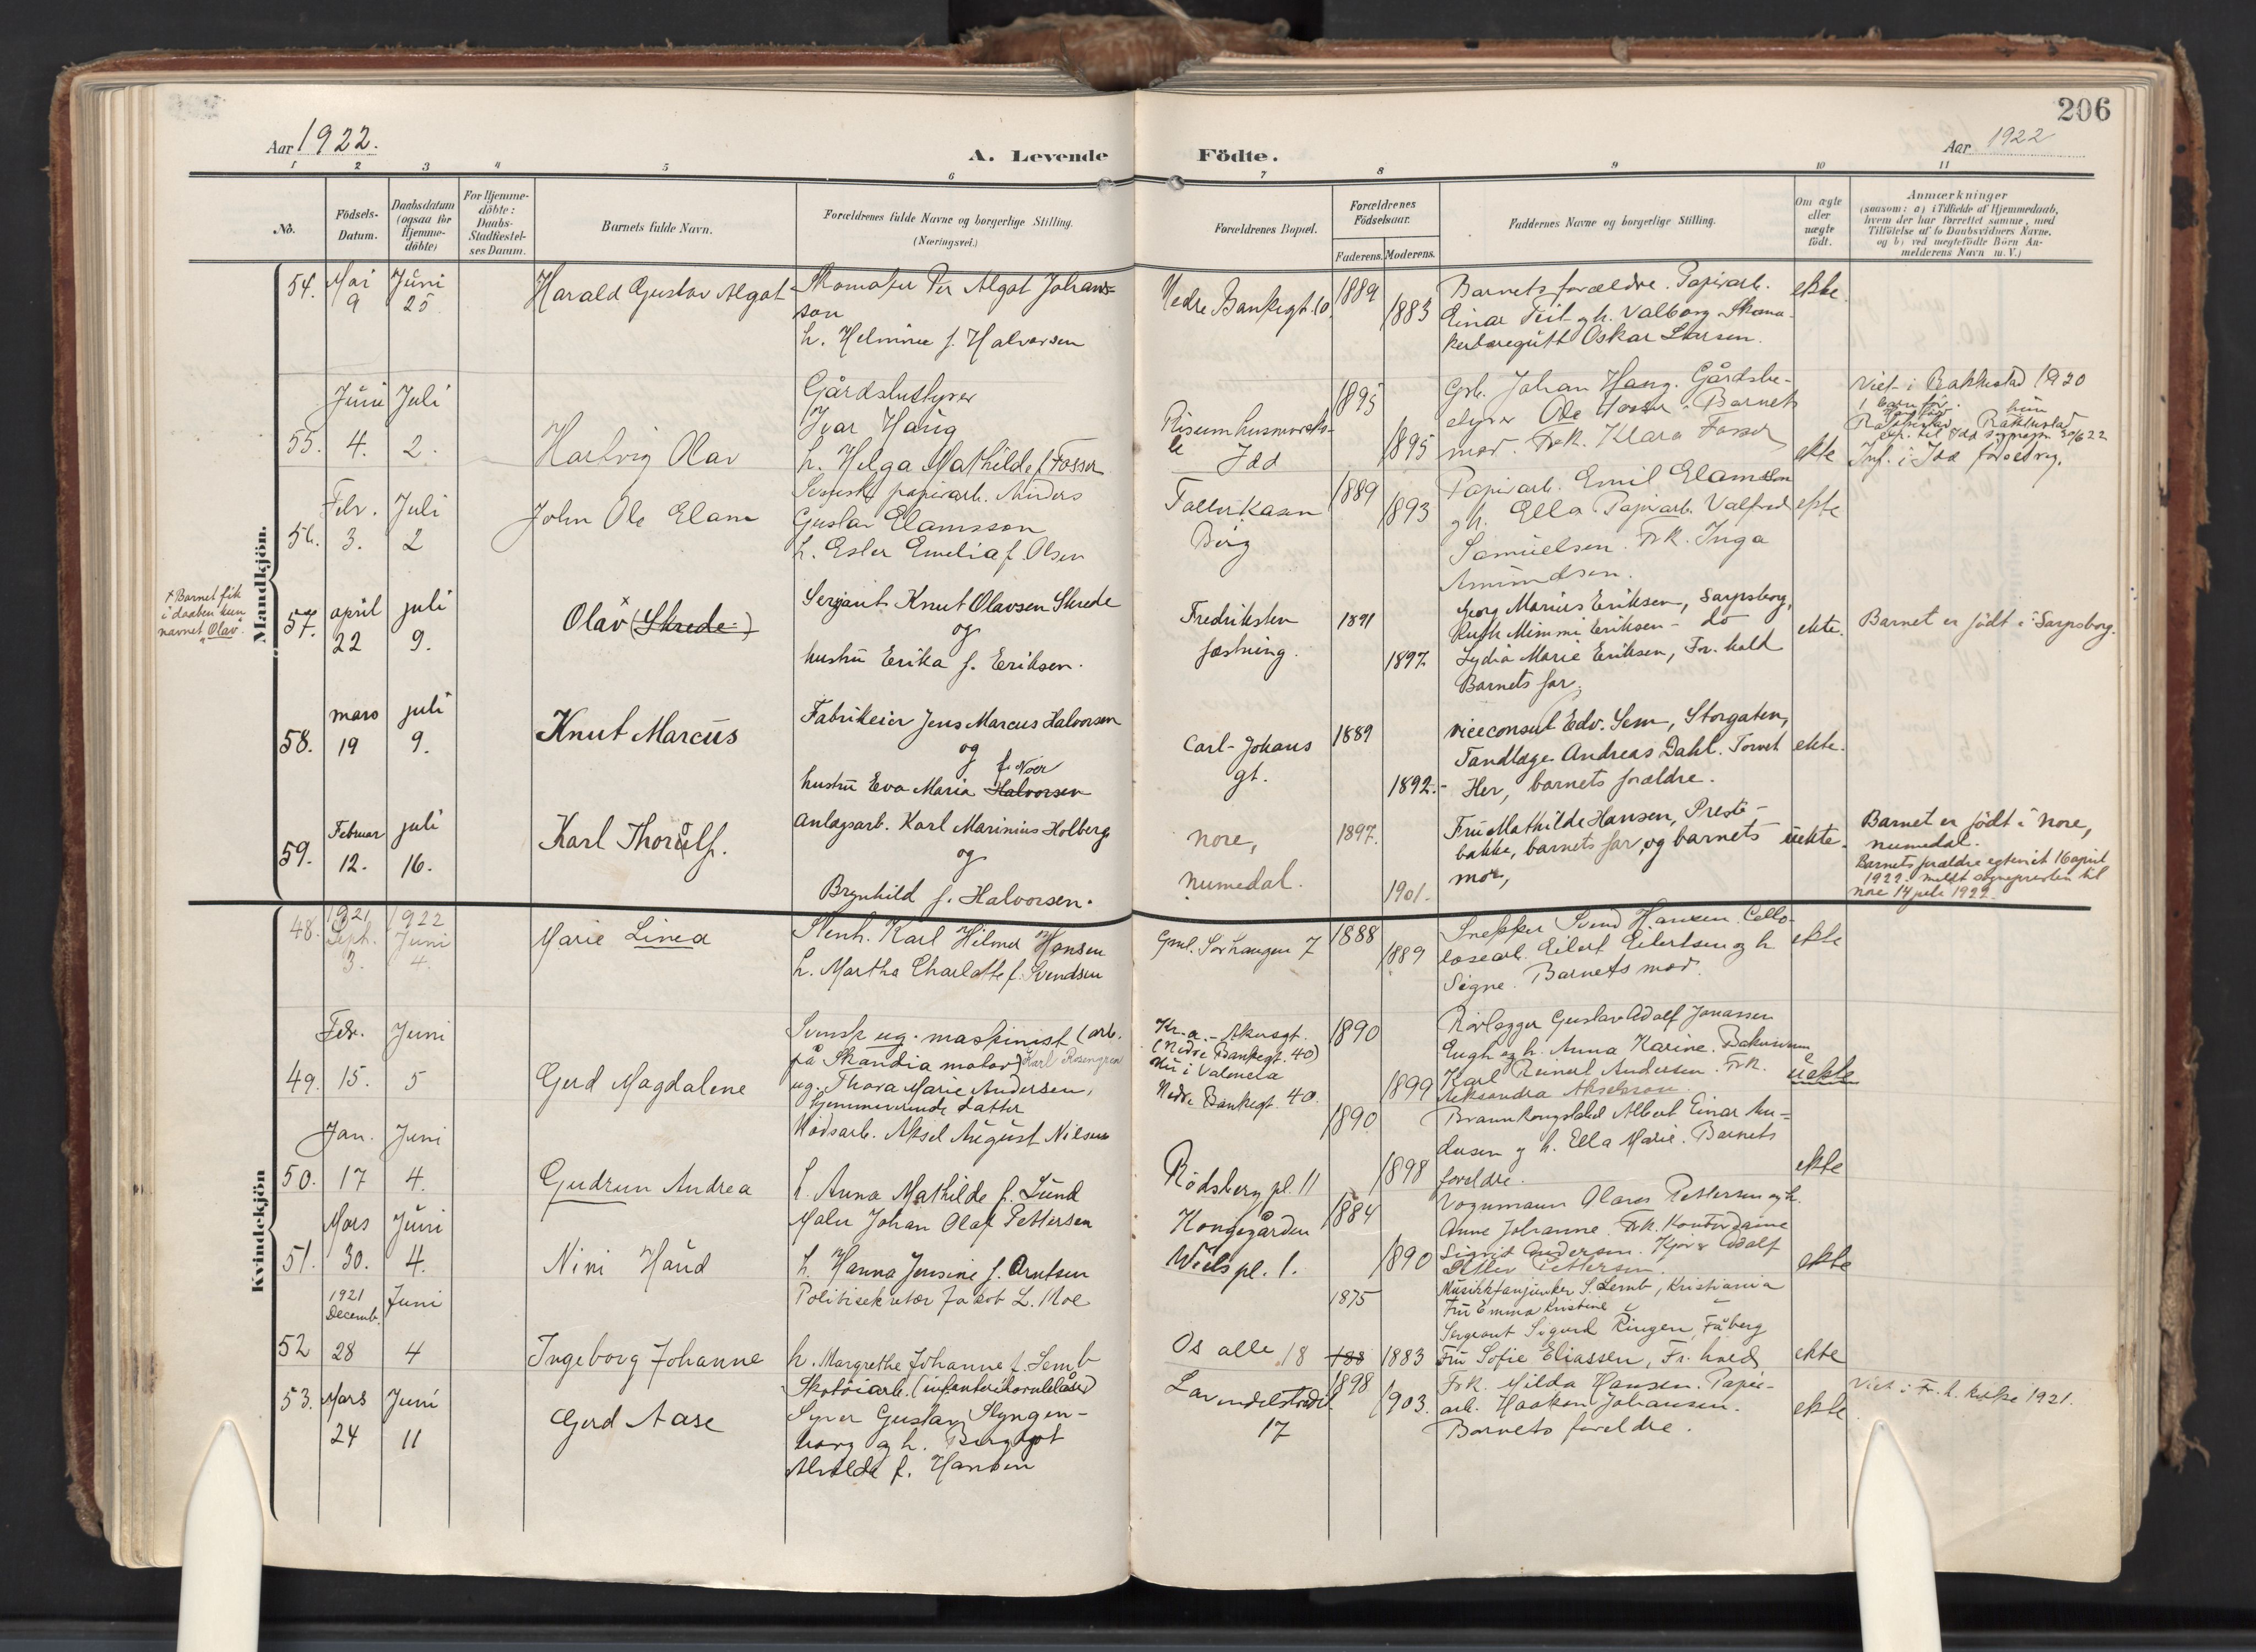 206
Aar 1922.
A. Levende Födte.
Aar 1922
1 2 3 4 5 6 7 8 9 10 11
No.
Födsels-
Datum.
Daabsdatum
(ogsaa for
Hjemme-
döbte)
For Hjemme-
döbte:
Daabs-
Stadfæstel-
ses Datum.
Barnets fulde Navn.
Forældrenes fulde Navne og borgerlige Stilling.
(Næringsvei.)
Forældrenes Bopæl.
Forældrenes
Födselsaar.
Faderens. Moderens.
Faddernes Navne og borgerlige Stilling.
Om ægte
eller
uægte
födt.
Anmærkninger
(saasom: a) i Tilfælde af Hjemmedaab,
hvem der har forrettet samme, med
Tilföielse af to Daabsvidners Navne,
og b) ved uegtefödte Börn An-
melderens Navn m. V.)
Mandkjön.
54.
Mai
9
Juni
25
Harald Gustav Algot
Skomaker Per Algot Johans-
son
h. Helmine f. Halvorsen
Nedre Bankegt. 10
1889
1883
Barnets forældre. Papirarb.
Einar Teit og h. Valborg Skoma-
Oskar Larsen.
ekte.
55.
Juni
4.
Juli
2.
Hartvig Olav
Gårdsbestyrer
Ivar Haug
h. Helga Mathilde f. Fosser
Idd
1895
1895
Grb. Johan Haug. Gårdsbe-
styrer Ole Fosser. Barnets
mor. Frk. Klara Fosser
ekte
Viet i Rakkestad 1920
1 barn før.
hun
Rakkestad
til Idd sogneprs. 30/6 22
Inf. i Idd
56.
Febr.
3.
Juli
2
John Ole Elam
Svensk papirarb. Anders
Gustav Elamsson
h. Ester Emelia f. Olsen
Berg
1889
1893
Papirarb. Emil Elamsson
og h. Ella Papirarb. Valfred
Samuelsen. Frk. Inga
Amundsen.
ekte
x Barnet fik
i daaben kun
navnet "Olav".
57.
april
22
juli
9.
Olav x (Skrede.)
Serjant Knut Olavsen Skrede
og
hustru Erika f. Eriksen.
Fredriksten
fæstning.
1891
1897.
Georg Marius Eriksen, Sarpsborg,
Ruth Mimmi Eriksen - do
Lydia Marie Eriksen, Fr. hald
Barnets far.
ekte.
Barnet er födt i Sarpsborg.
58.
mars
19
juli
9.
Knut Marcus
Fabrikeier Jens Marcus Halvorsen
og
f. Noer
hustru Eva Maria Halvorsen
Carl-Johans
gt.
1889
1892.-
viceconsul Edv. Sem, Storgaten,
Tandlæge Andreas Dahl. Torvet
Her, barnets forældre.
ekte.
59.
Februar
12.
juli
16.
Karl Thorulf.
Anlægsarb. Karl Marinius Holberg
og
Brynhild f. Halvorsen.
Nore,
Numedal.
1897.
1901.
Fru Mathilde Hansen, Preste-
bakke, barnets far, og barnets
mor,
uekte.
Barnet er födt i Nore,
numedal.
Barnets forældre egteviet 16 april
1922. meldt sognepresten til
Nore 14 juli 1922.
Kvindekjön
48.
1921
Sept.
3.
1922
Juni
4.
Marie Linea
Stenh. Karl Hilmer Hansen
h. Martha Charlotte f. Svendsen
Gml. Sørhaugen 7
1888
1889
Snekker Svend Hansen. Cello-
losearb. Eilert Eilertsen og h.
Signe. Barnets mor.
ekte
49.
Febr.
15.
Juni
5
Gerd Magdalene
Svensk ug. maskinist (arb.
på Skandia motor) Karl Rosengren
ug. Thora Marie Andersen,
hjemmeværende datter
Kr.a. - Akersgt.
(Nedre Bankegt. 40)
nu i Valencia
Nedre Bankegt. 40.
1890
1899
Rørlægger Gustav Adolf Jonassen
Engh og h. Anna Karine.
Karl Reinert Andersen. Frk.
Aleksandra Akselsson.
uekte
50.
Jan.
17
Juni
4.
Gudrun Andrea
Aksel August Nilsen
h. Anna Mathilde f. Lund
Rødsberg pl. 11
1890
1898
Albert Einar An-
dersen og h. Ella Marie. Barnets
foreldre.
ekte
51.
Mars
30.
Juni
4.
Nini Haud
Maler Johan Olaf Pettersen
h. Hanna Jensine f. Arntsen
Kongegården
Wiels pl. 1.
1884
1890
Vognmann Olaves Pettersen og h.
Anne Johanne. Frk. Kontordame
Sigrid Andersen. Kjører Adolf
Pettersen.
ekte
52
1921
Decemb.
28
Juni
4
Ingeborg Johanne
Politisekretær Jakob L. Moe
h. Margrethe Johanne f. Lemb
Os alle 18
1875
188
1883
Musikkfanjunker S. Lemb, Kristiania
Fru Emma Kristine
Sergeant Sigurd Ringen, Fåberg
Fru Sofie Eliassen, Fr. hald
ekte
53.
Mars
24
Juni
11
Gerd Aase
Skotøiarb. (infanterihornblåser)
Syver Gustav Slyngen-
borg og h. Bergljot
Alvilde f. Hansen
Lavendelstrædet
17
1898
1903.
Frk. Milda Hansen. Papir-
arb. Haakon Johansen.
Barnets foreldre.
ekte
Viet i Fr. h. kirke 1921.